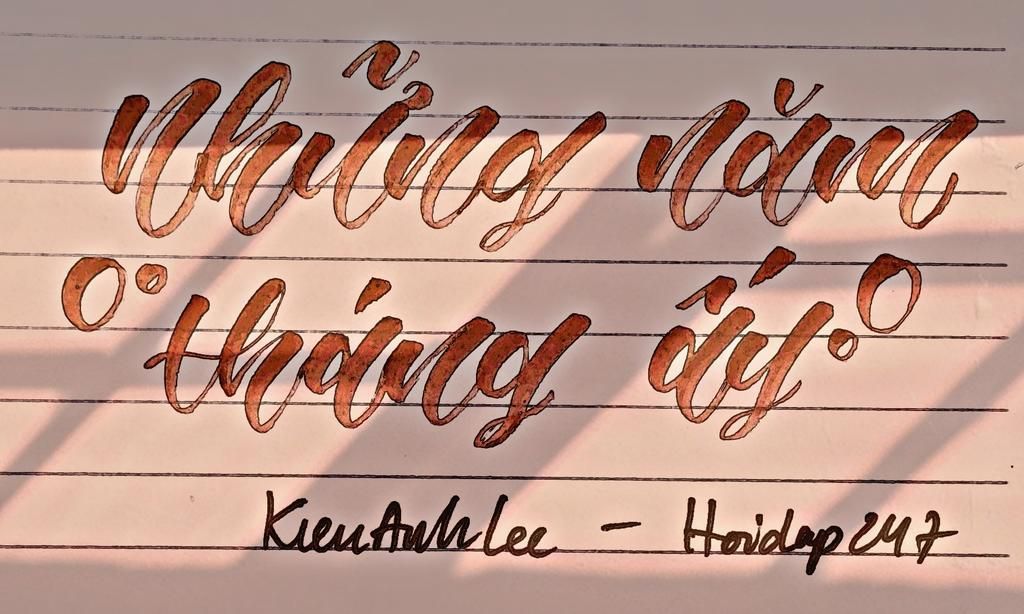 Những năm
tháng ấy
KienAnhLee - Hoidap247